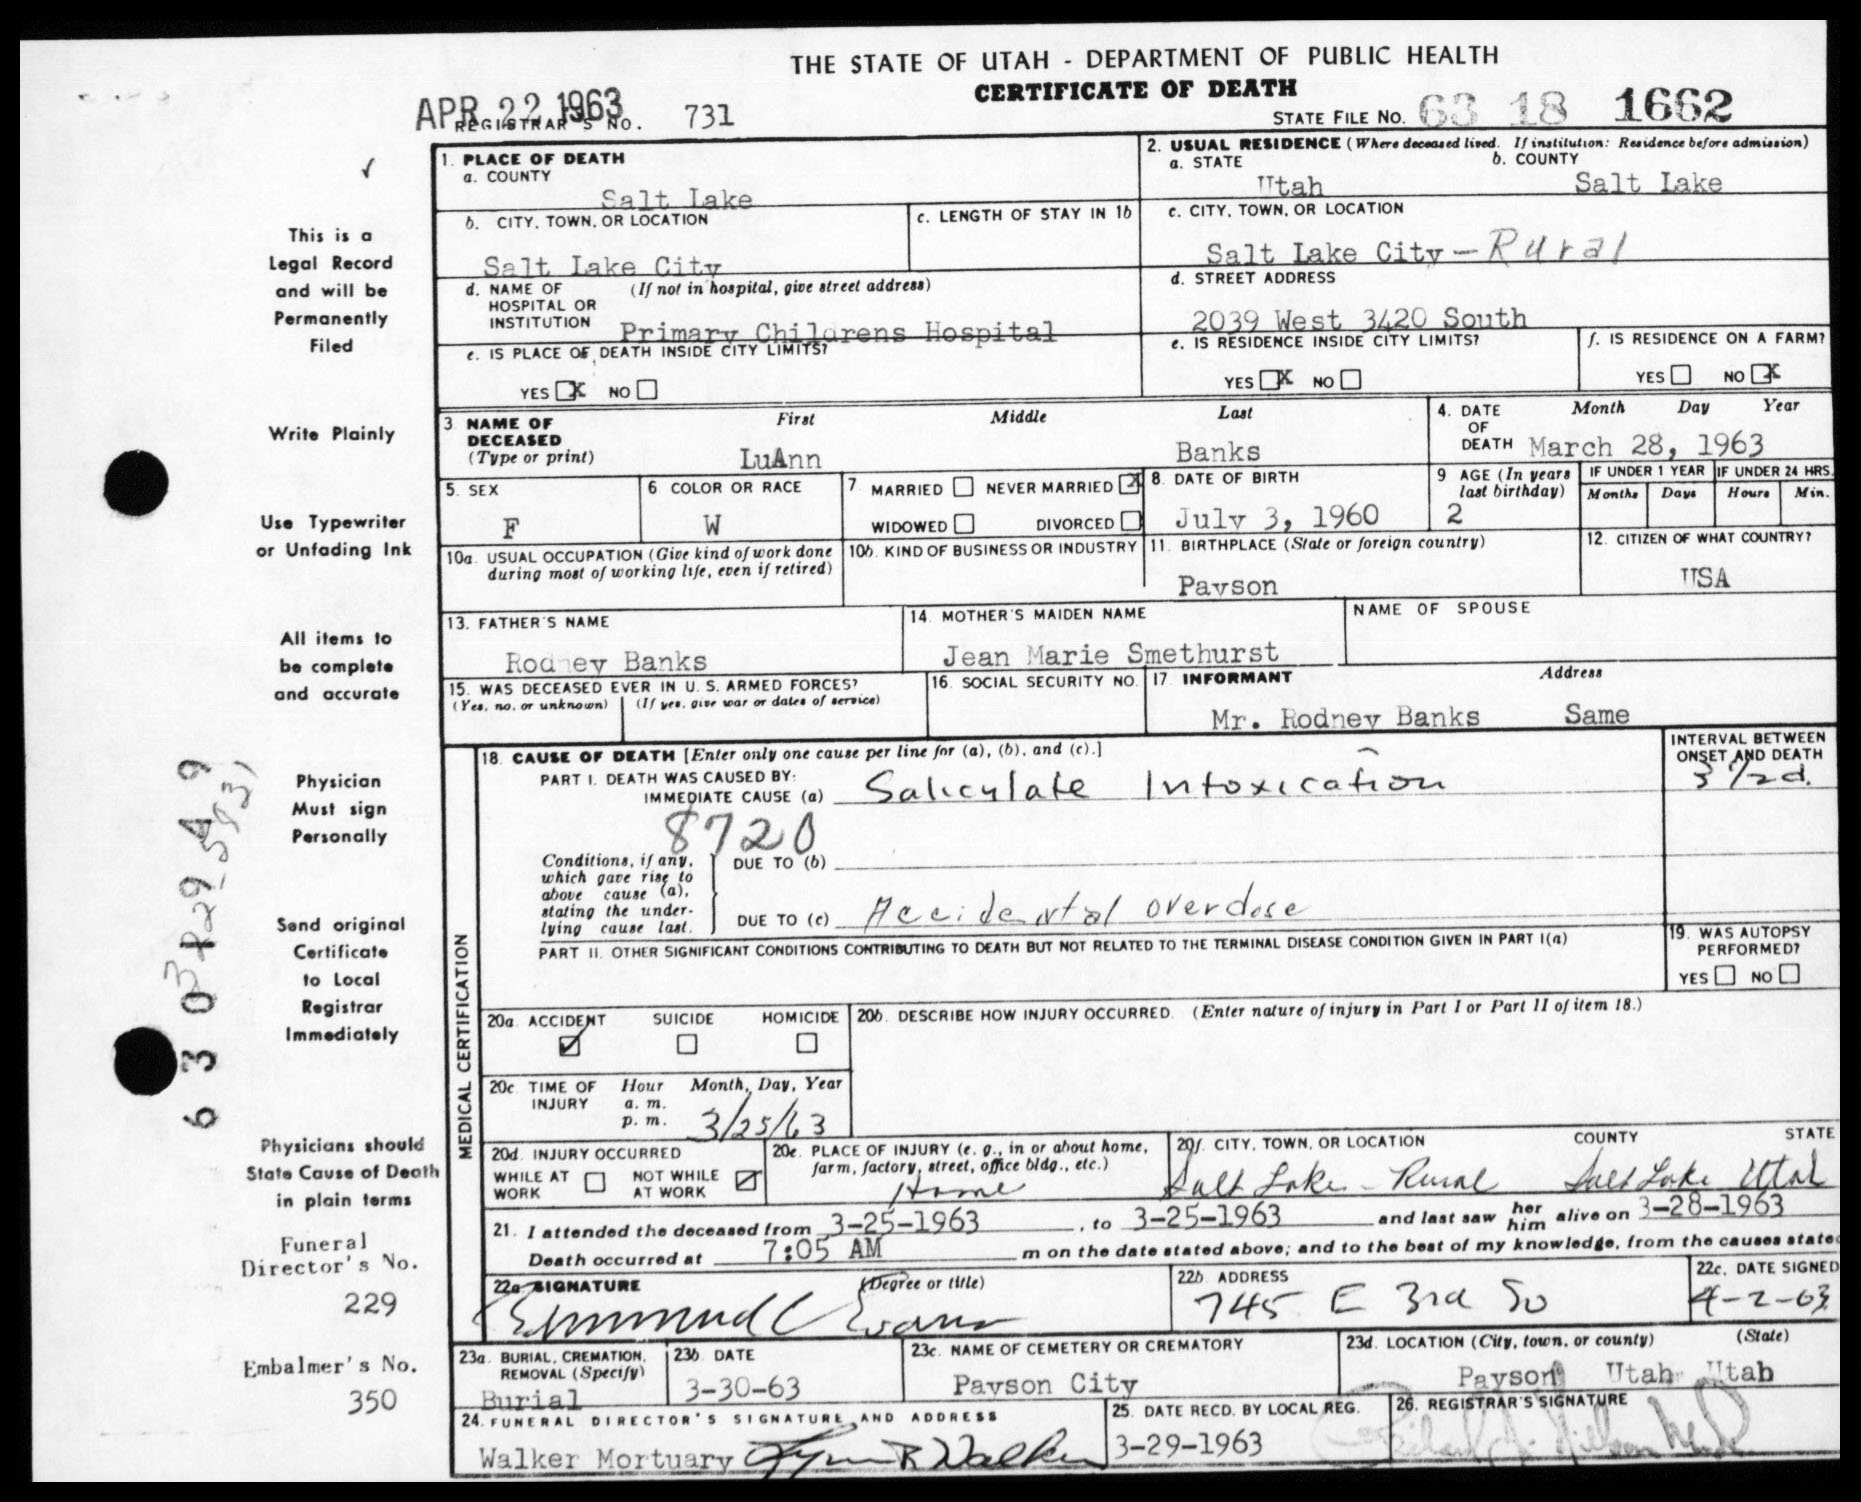 THE STATE OF UTAH - DEPARTMENT OF PUBLIC HEALTH
CERTIFICATE OF DEATH
APR 22 1963
REGISTRAR'S NO. 731
STATE FILE NO. 63 18 1662
This is a
Legal Record
and will be
Permanently
Filed
Write Plainly
Use Typewriter
or Unfading Ink
All items to
be complete
and accurate
Physician
Must sign
Personally
Send original
Certificate
to Local
Registrar
Immediately
Physicians should
State Cause of Death
in plain terms
Funeral
Director's No.
229
Embalmer's No.
350
1. PLACE OF DEATH
a. COUNTY
Salt Lake
2. USUAL RESIDENCE (Where deceased lived. If institution: Residence before admission)
a. STATE b. COUNTY
Utah Salt Lake
b. CITY, TOWN, OR LOCATION
Salt Lake City
c. LENGTH OF STAY IN 1b
c. CITY, TOWN, OR LOCATION
Salt Lake City - Rural
d. NAME OF (If not in hospital, give street address)
HOSPITAL OR
INSTITUTION Primary Childrens Hospital
d. STREET ADDRESS
2039 West 3420 South
e. IS PLACE OF DEATH INSIDE CITY LIMITS?
YES X NO
e. IS RESIDENCE INSIDE CITY LIMITS?
YES X NO
f. IS RESIDENCE ON A FARM?
YES NO X
3 NAME OF First Middle Last
DECEASED
(Type or print) LuAnn Banks
4. DATE Month Day Year
OF
DEATH March 28, 1963
5. SEX
F
6 COLOR OR RACE
W
7 MARRIED NEVER MARRIED X
WIDOWED DIVORCED
8. DATE OF BIRTH
July 3, 1960
9 AGE (In years
last birthday)
2
IF UNDER 1 YEAR IF UNDER 24 HRS.
Months Days Hours Min.
10a. USUAL OCCUPATION (Give kind of work done
during most of working life, even if retired)
10b. KIND OF BUSINESS OR INDUSTRY
11. BIRTHPLACE (State or foreign country)
Payson
12. CITIZEN OF WHAT COUNTRY?
USA
13. FATHER'S NAME
Rodney Banks
14. MOTHER'S MAIDEN NAME
Jean Marie Smethurst
NAME OF SPOUSE
15. WAS DECEASED EVER IN U. S. ARMED FORCES?
(Yes, no, or unknown) (If yes, give war or dates of service)
16. SOCIAL SECURITY NO.
17. INFORMANT Address
Mr. Rodney Banks Same
MEDICAL CERTIFICATION
18. CAUSE OF DEATH [Enter only one cause per line for (a), (b), and (c).]
INTERVAL BETWEEN
ONSET AND DEATH
PART I. DEATH WAS CAUSED BY:
IMMEDIATE CAUSE (a) Salicylate Intoxication 3 1/2 d.
8720
Conditions, if any,
which gave rise to
above cause (a),
stating the under-
lying cause last.
DUE TO (b)
DUE TO (c) Accidental overdose
PART II. OTHER SIGNIFICANT CONDITIONS CONTRIBUTING TO DEATH BUT NOT RELATED TO THE TERMINAL DISEASE CONDITION GIVEN IN PART I(a)
19. WAS AUTOPSY
PERFORMED?
YES NO
20a. ACCIDENT SUICIDE HOMICIDE
20b. DESCRIBE HOW INJURY OCCURRED. (Enter nature of injury in Part I or Part II of item 18.)
20c. TIME OF Hour Month, Day, Year
INJURY a. m.
p. m. 3/25/63
20d. INJURY OCCURRED
WHILE AT NOT WHILE
WORK AT WORK
20e. PLACE OF INJURY (e. g., in or about home,
farm, factory, street, office bldg., etc.)
Home
20f. CITY, TOWN, OR LOCATION COUNTY STATE
Salt Lake - Rural Salt Lake Utah
21. I attended the deceased from 3-25-1963, to 3-25-1963 and last saw her him alive on 3-28-1963
Death occurred at 7:05 AM m on the date stated above; and to the best of my knowledge, from the causes stated
22a SIGNATURE (Degree or title)
Edmund C Evans
22b. ADDRESS
745 E 3rd So
22c. DATE SIGNED
4-2-63
23a. BURIAL, CREMATION,
REMOVAL (Specify)
Burial
23b. DATE
3-30-63
23c. NAME OF CEMETERY OR CREMATORY
Payson City
23d. LOCATION (City, town, or county) (State)
Payson Utah Utah
24. FUNERAL DIRECTOR'S SIGNATURE AND ADDRESS
Walker Mortuary Lynn R Walker
25. DATE RECD. BY LOCAL REG.
3-29-1963
26. REGISTRAR'S SIGNATURE